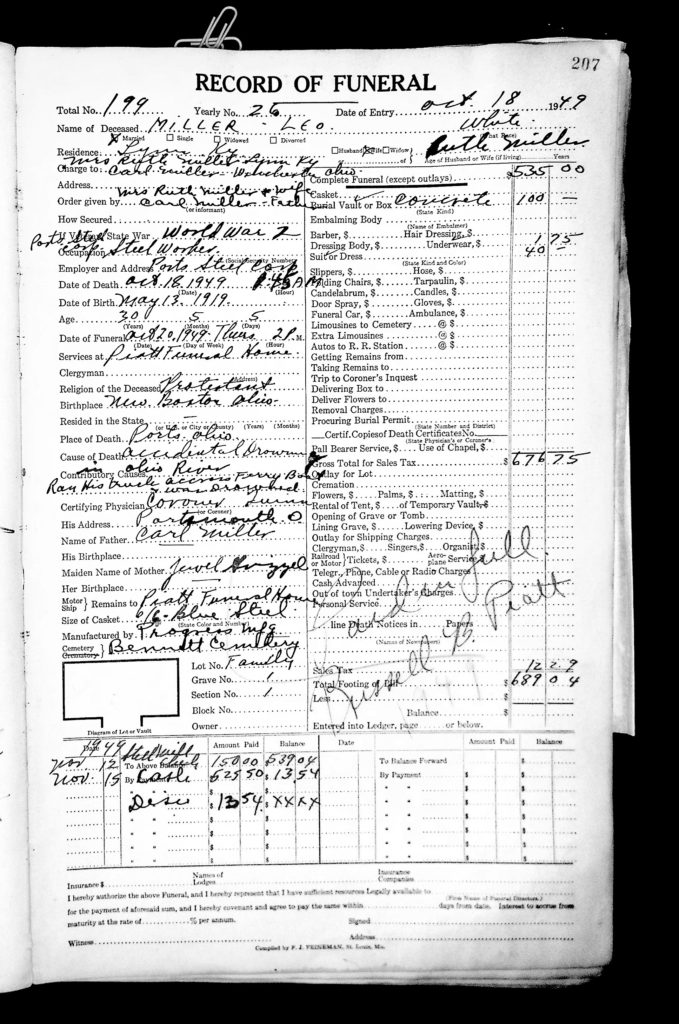 207
RECORD OF FUNERAL
Total No. 199 Yearly No. 26 Date of Entry Oct 18 1949
Name of Deceased MILLER - LEO. White
X Married Single Widowed Divorced
Residence: Lynn Ky Husband Wife Widow of Ruth Miller
Age of Husband or Wife (if living) Years
Charge to: Mrs Ruth Miller Lynn Ky
Carl Miller - Ohio
Address
Order given by Mrs Ruth Miller + Wife
Carl Miller - Father
(or informant)
How Secured
If Veteran State War World War 2
Occupation Steel Worker
(Social Security Number)
Employer and Address Ports Steel Corp
Date of Death Oct 18, 1949 A M
(Date) (Hour)
Date of Birth May 13. 1919.
Age 30 5 5
(Years) (Months) (Days)
Date of Funeral Oct 20, 1949 Thurs 2 P. M.
(Date) (Day of Week) (Hour)
Services at Piatt Funeral Home
(Address)
Clergyman
Religion of the Deceased Protestant
Birthplace New Boston Ohio.
Resided in the State —
(or U.S. or City or County) (Years) (Months)
Place of Death Ports. Ohio.
Cause of Death Accidental Drown
in Ohio River
Contributory Causes
Ran His truck across Ferry Boat
+ was Drowned.
Certifying Physician Coroner
(or Coroner)
His Address Portsmouth O
Name of Father Carl Miller
His Birthplace —
Maiden Name of Mother Jewel
Her Birthplace —
Motor Ship Remains to Piatt Funeral Home
Size of Casket 6/6 - Blue Steel
(State Color and Number)
Manufactured by Progress Mfg
Cemetery Crematory Bennett Cemetery
Lot No. Family
Grave No. 1
Section No. 1
Block No.
Owner
Diagram of Lot or Vault
Complete Funeral (except outlays) $535 00
Casket
Burial Vault or Box Concrete 100 —
(State Kind)
Embalming Body
(Name of Embalmer)
Barber, $ Hair Dressing, $
Dressing Body, $ Underwear, $ 1 75
Suit or Dress 40 —
(State Kind and Color)
Slippers, $ Hose, $
Folding Chairs, $ Tarpaulin, $
Candelabrum, $ Candles, $
Door Spray, $ Gloves, $
Funeral Car, $ Ambulance, $
Limousines to Cemetery @ $
Extra Limousines @ $
Autos to R. R. Station @ $
Getting Remains from
Taking Remains to
Trip to Coroner's Inquest
Delivering Box to
Deliver Flowers to
Removal Charges
Procuring Burial Permit
(State Number and District)
Certif. Copies of Death Certificates No.
(State Physician's or Coroner's)
Pall Bearer Service, $ Use of Chapel, $
Gross Total for Sales Tax $ 676 75
Outlay for Lot
Cremation
Flowers, $ Palms, $ Matting, $
Rental of Tent, $ of Temporary Vault, $
Opening of Grave or Tomb
Lining Grave, $ Lowering Device, $
Outlay for Shipping Charges
Clergyman, $ Singers, $ Organist, $
Railroad or Motor Tickets, $ Aeroplane Service
Telegr., Phone, Cable or Radio Charges
Cash Advanced
Out of town Undertaker's Charges
Personal Service
line Death Notices in Papers
(Names of Newspapers)
Paid in full.
Russell B Piatt
Sales Tax 12 29
Total Footing of Bill $ 689 04
Less $
Balance $
Entered into Ledger, page or below.
1949 Date Amount Paid Balance Date Amount Paid Balance
Nov. 12 To Above Balance $ 150 00 $ 539 04 To Balance Forward $
Nov. 15 By Payment $ 525 50 $ 13 54 By Payment $
Disc $ 13 54 $ XX XX
Insurance $ Names of Lodges Insurance Companies
I hereby authorize the above Funeral, and I hereby represent that I have sufficient resources Legally available to
(Firm Name of Funeral Directors.)
for the payment of aforesaid sum, and I hereby covenant and agree to pay the same within days from date. Interest to accrue from
maturity at the rate of % per annum. Signed
Address
Witness
Compiled by F. J. FEINEMAN, St. Louis, Mo.